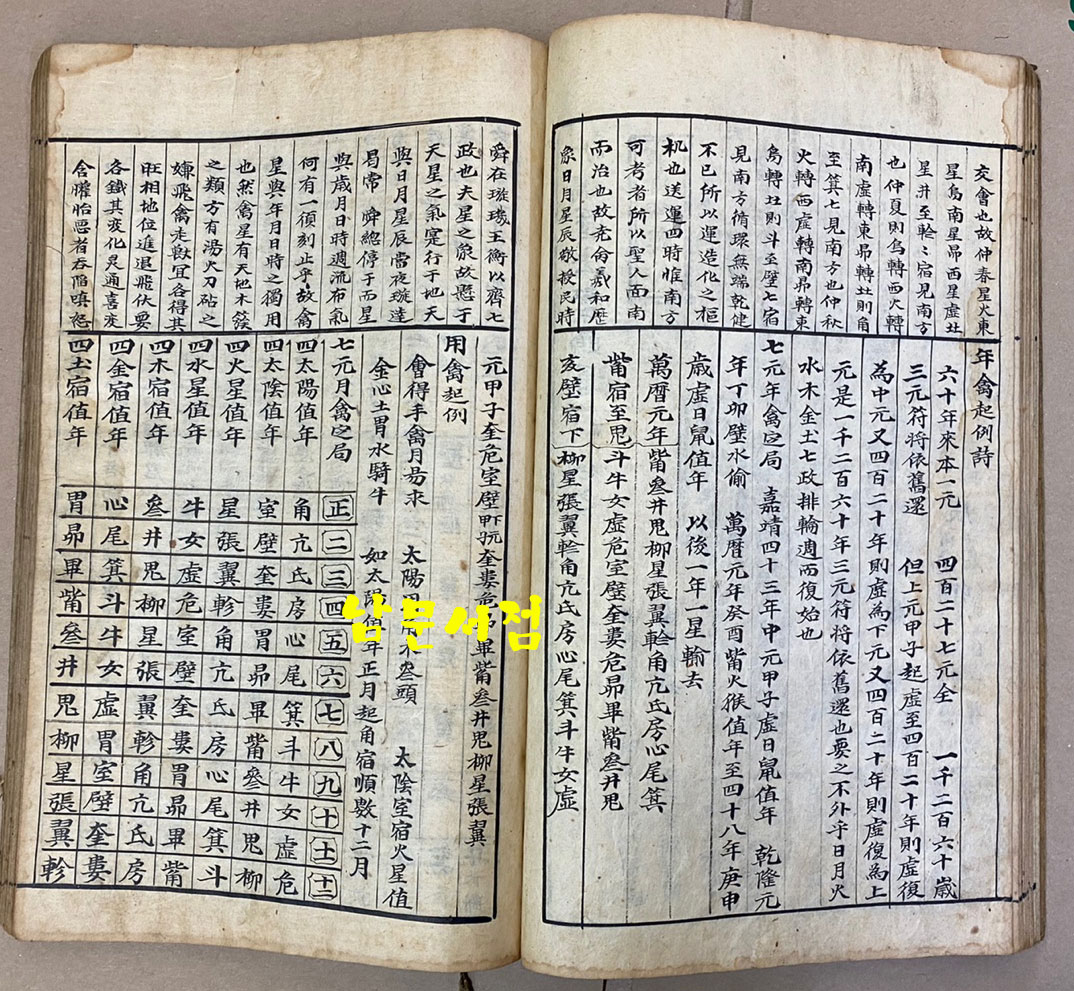 交會也故仲春星火東
星鳥南星昴西星虛北
星井至軫ミ宿見南方
也仲夏則鳥轉西火轉
南虛轉東昴轉北則角
至箕七見南方也仲秋
火轉西虛轉南昴轉東
鳥轉北則斗至壁七宿
見南方循環無端乾健
不已所以運造化之樞
机也送運四時惟南方
可考者所以聖人面南
而治也故堯侖羲和歷
象日月星辰敬授民時
年禽起例詩
六十年來本一元 四百二十七元全 一千二百六十歲
三元符将依舊還 但上元甲子起虛至四百二十年則虛復
為中元又四百二十年則虛為下元又四百二十年則虛復為上
元是一千二百六十年三元符将依舊還也要之不外乎日月火
水木金土七政排輪週而復始也
七元年禽定局 嘉靖四十三年中元甲子虛日鼠值年 乾隆元
年丁卯壁水偷 萬曆元年癸酉觜火猴值年至四十八年庚申
歲虛日鼠值年 以後一年一星輪去
萬曆元年觜叄井鬼柳星張翼軫角亢氐房心尾箕
觜宿至鬼斗牛女虛危室壁奎婁危昴畢觜叄井鬼
亥壁宿下柳星張翼軫角亢氐房心尾箕斗牛女虛
舜在璇璣玉衡以齊七
政也夫星之象故懸于
天星之氣寔行于地天
與日月星辰當夜璇遶
曷常 舜總停于而星
與歲月日時週流布氣
何有一須刻止乎故禽
星與年月日時之獨用
也然禽星有天地木
之類方有湯火刀砧之
嫌飛禽走獸宜各得其
旺相地位進退飛伏要
各其變化通喜
含怡惡者吞陷嗔怒
元甲子奎危室壁奎婁危畢觜叄井鬼柳星張翼
用禽起例
會得年禽月易求 太陽叄頭 太陰室宿火星值
金心土胃水騎牛 如太陽值年正月起角宿順數十二月
七元月禽定局 正 二 三 四 五 六 七 八 九 十 十一 十二
四太陽值年 角 亢 氐 房 心 尾 箕 斗 牛 女 虛 危
四太陰值年 室 壁 奎 婁 胃 昴 畢 觜 參 井 鬼 柳
四火星值年 星 張 翼 軫 角 亢 氐 房 心 尾 箕 斗
四水星值年 牛 女 虛 危 室 壁 奎 婁 胃 昴 畢 觜
四木宿值年 參 井 鬼 柳 星 張 翼 軫 角 亢 氐 房
四金宿值年 心 尾 箕 斗 牛 女 虛 胃 室 壁 奎 婁
四土宿值年 胃 昴 畢 觜 參 井 鬼 柳 星 張 翼 軫
남문서점